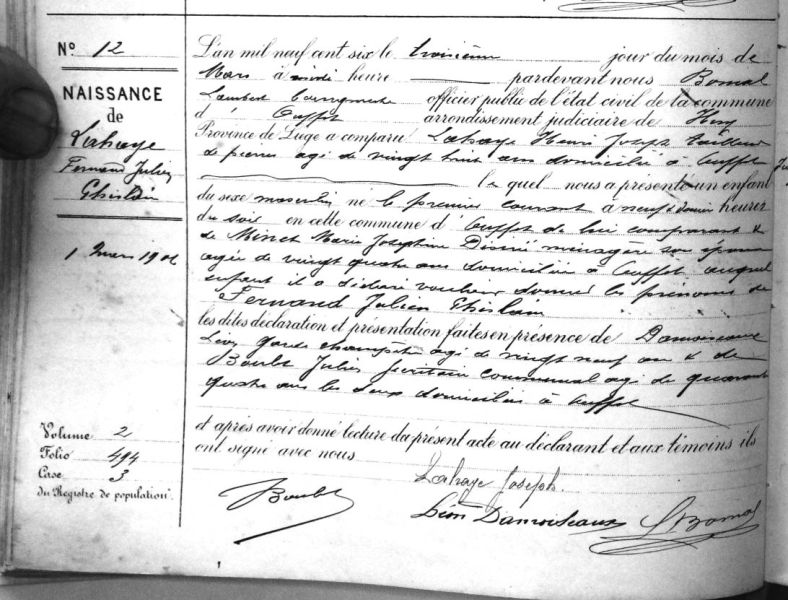 N° 12
NAISSANCE
de
Lahaye
Fernand Julien
Ghislain
1 mars 1906
Volume 2
Folio 494
Case 3
du Registre de population.
L'an mil neuf cent six le troisième jour du mois de
Mars à midi heure pardevant nous Bomal
Lambert officier public de l'état civil de la commune
d' Ouffet arrondissement judiciaire de Huy
Province de Liège a comparu Lahaye Henri Joseph tailleur
de pierres agé de vingt huit ans domicilié à Ouffet
le quel nous a présenté un enfant
du sexe masculin né le premier courant à neuf & demie heures
du soir en cette commune d' Ouffet de lui comparant &
de Minet Marie Joséphine Désiré ménagère son épouse
agée de vingt quatre ans domiciliée à Ouffet auquel
enfant il a déclaré vouloir donner les prénoms de
Fernand Julien Ghislain
les dites déclaration et présentation faites en présence de Damoiseaux
Léon garde champêtre agé de vingt neuf ans & de
Boulet Jules secrétaire communal agé de quarante
quatre ans les deux domiciliés à Ouffet
et après avoir donné lecture du présent acte au déclarant et aux témoins ils
ont signé avec nous
Lahaye Joseph.
Boulet
Léon Damoiseaux
LBomal